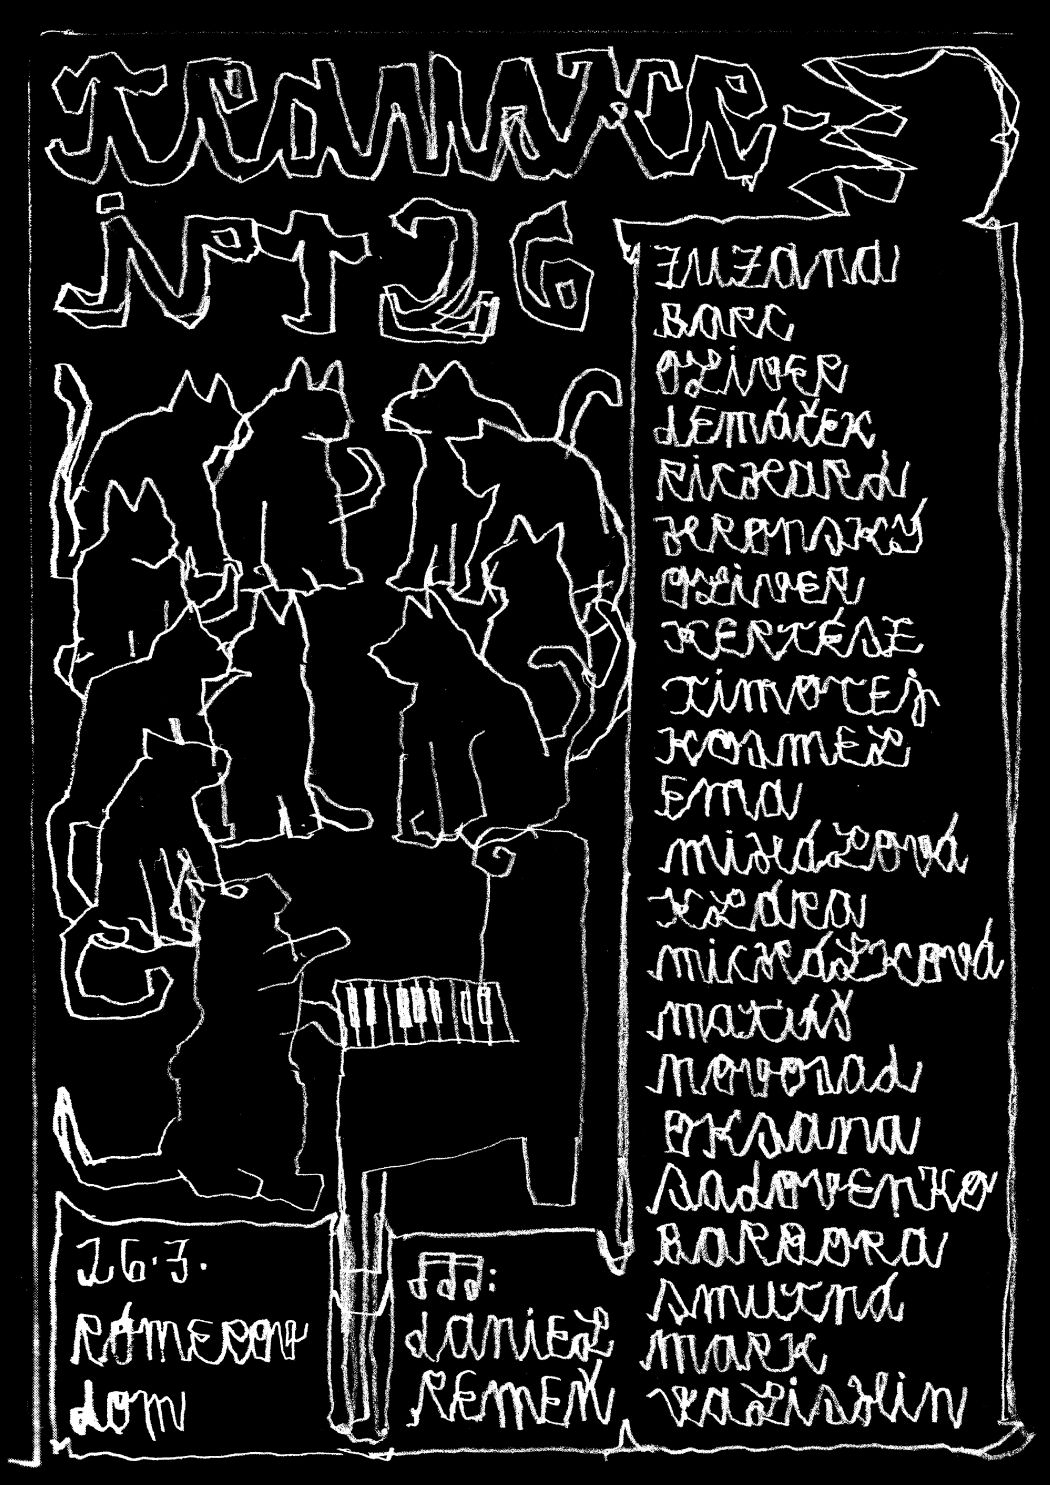 26
ZUZANA
BARC
OLIVER
DEMÁČEK
RICHARD
HRONSKÝ
OLIVER
KERTÉSZ
TIMOTEJ
KOSMEL
EMA
MIHÁLOVÁ
KLÁRA
MICHÁLKOVÁ
MATÚŠ
NOVOSAD
OKSANA
SADOVENKO
BARBORA
SMUTNÁ
MARK
VALISHIN
26.3.
RÓMEROV
DOM
DANIEL
REMEŇ